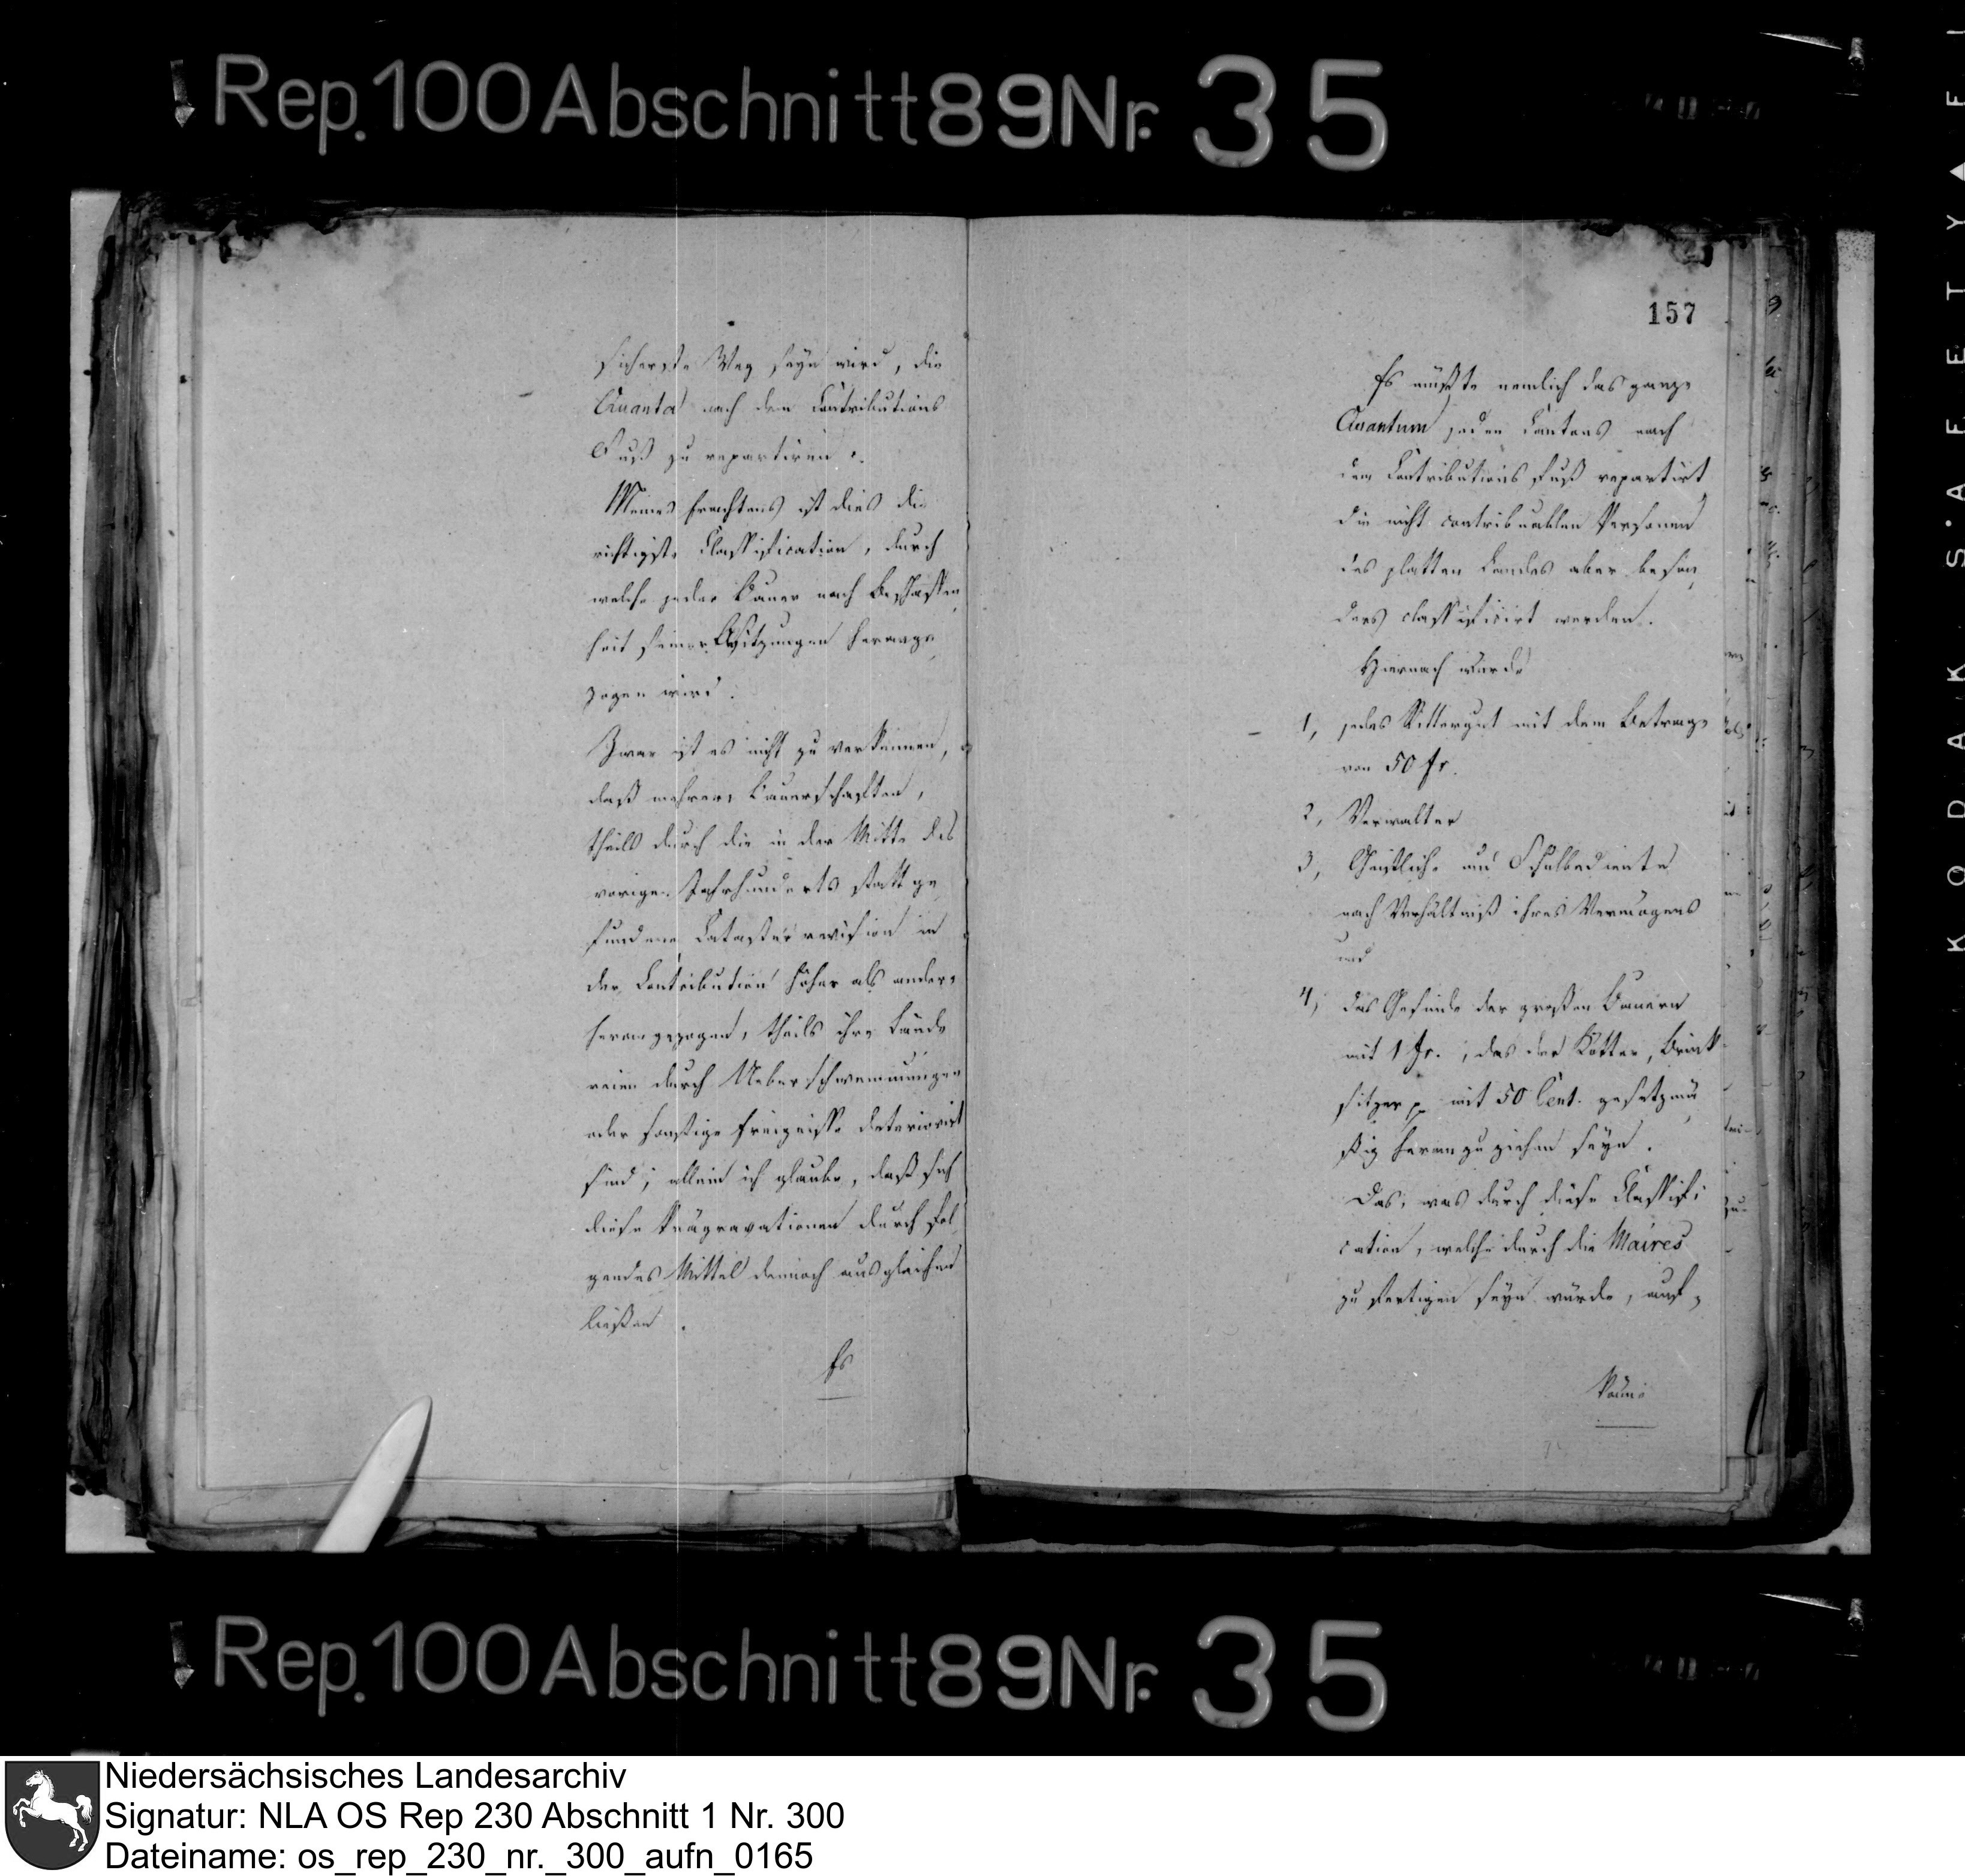 Rep. 100 Abschnitt 89 Nr. 35
sicherste Weg seyn wird, die
Quanta nach dem Contributions
Fuß zu repartiren.
Meines Erachtens ist dies die
richtigste Classification, durch
welche jeder Bauer nach Beschaffen,
heit seiner Besitzungen herange,
zogen wird.
Zwar ist es nicht zu verkennen,
daß mehrere Bauerschaften,
theils durch die in der Mitte des
vorigen Jahrhunderts statt ge,
fundene Catasterrevision in
der Contribution höher als andere
herangezogen, theils ihre Lände
reien durch Ueberschwemmungen
oder sonstige Ereignisse deteriorirt
sind; allein ich glaube, daß sich
diese Prägravationen durch fol
gendes Mittel dennoch ausgleichen
ließen.
Es
157
Es müßte nemlich das ganze
Quantum jeden Cantons nach
dem Contributions Fuß repartirt,
die nicht contribuablen Personen
des platten Landes aber beson,
ders classificirt werden.
Hiernach würde
1, jedes Rittergut mit dem Betrage
von 50 fr.
2, Verwalter
3, Geistliche und Schulbediente
nach Verhältniß ihres Vermögens
und
4, das Gesinde der großen Bauern
mit 1 fr., das der Kötter, Brink
sitzer p. mit 50 Cent. gesetzmä,
ßig heranzuziehen seyn.
Das, was durch diese Classifi
cation, welche durch die Maires
zu fertigen seyn würde, auf,
käme
Rep. 100 Abschnitt 89 Nr. 35
KODAK S.A.F.E.T.Y.
Niedersächsisches Landesarchiv
Signatur: NLA OS Rep 230 Abschnitt 1 Nr. 300
Dateiname: os_rep_230_nr._300_aufn_0165